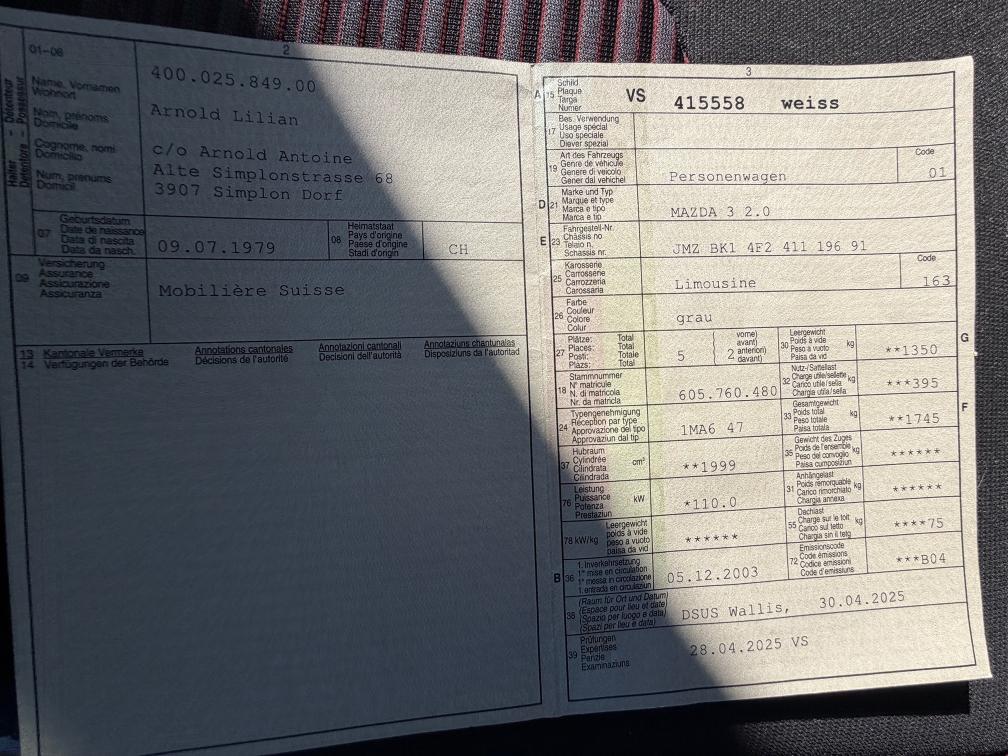 2
01-06
Halter - Détenteur
Detentore - Possessur
Name, Vornamen
Wohnort
Nom, prénoms
Domicile
Cognome, nomi
Domicilio
Num, prenums
Domicil
400.025.849.00
Arnold Lilian
c/o Arnold Antoine
Alte Simplonstrasse 68
3907 Simplon Dorf
07
Geburtsdatum
Date de naissance
Data di nascita
Data da nasch.
09.07.1979
08
Heimatstaat
Pays d'origine
Paese d'origine
Stadi d'origin
CH
09
Versicherung
Assurance
Assicurazione
Assicuranza
Mobilière Suisse
13 Kantonale Vermerke
14 Verfügungen der Behörde
Annotations cantonales
Décisions de l'autorité
Annotazioni cantonali
Decisioni dell'autorità
Annotaziuns chantunalas
Disposiziuns da l'autoritad
3
A 15
Schild
Plaque
Targa
Numer
VS 415558 weiss
17
Bes. Verwendung
Usage spécial
Uso speciale
Diever spezial
19
Art des Fahrzeugs
Genre de véhicule
Genere di veicolo
Gener dal vehichel
Personenwagen
Code
01
D 21
Marke und Typ
Marque et type
Marca e tipo
Marca e tip
MAZDA 3 2.0
E 23
Fahrgestell-Nr.
Châssis no
Telaio n.
Schassis nr.
JMZ BK1 4F2 411 196 91
25
Karosserie
Carrosserie
Carrozzeria
Carossaria
Limousine
Code
163
26
Farbe
Couleur
Colore
Colur
grau
27
Plätze: Total
Places: Total
Posti: Totale
Plazs: Total
5
2
vorne)
avant)
anteriori)
davant)
30
Leergewicht
Poids à vide
Peso a vuoto
Paisa da vid
kg
**1350
G
18
Stammnummer
N° matricule
N. di matricola
Nr. da matricla
605.760.480
32
Nutz-/Sattellast
Charge utile/sellette
Carico utile/sella
Chargia utila/sella
kg
***395
24
Typengenehmigung
Réception par type
Approvazione del tipo
Approvaziun dal tip
1MA6 47
33
Gesamtgewicht
Poids total
Peso totale
Paisa totala
kg
**1745
F
37
Hubraum
Cylindrée
Cilindrata
Cilindrada
cm³
**1999
35
Gewicht des Zuges
Poids de l'ensemble
Peso del convoglio
Paisa cumposiziun
kg
******
76
Leistung
Puissance
Potenza
Prestaziun
kW
*110.0
31
Anhängelast
Poids remorquable
Carico rimorchiato
Chargia annexa
kg
******
78 kW/kg
Leergewicht
poids à vide
peso a vuoto
paisa da vid
******
55
Dachlast
Charge sur le toit
Carico sul tetto
Chargia sin il tetg
kg
****75
B 36
1. Inverkehrsetzung
1re mise en circulation
1a messa in circolazione
1. entrada en circulaziun
05.12.2003
72
Emissionscode
Code émissions
Codice emissioni
Code d'emissiuns
***B04
38
(Raum für Ort und Datum)
(Espace pour lieu et date)
(Spazio per luogo e data)
(Spazi per lieu e data)
DSUS Wallis, 30.04.2025
39
Prüfungen
Expertises
Perizie
Examinaziuns
28.04.2025 VS